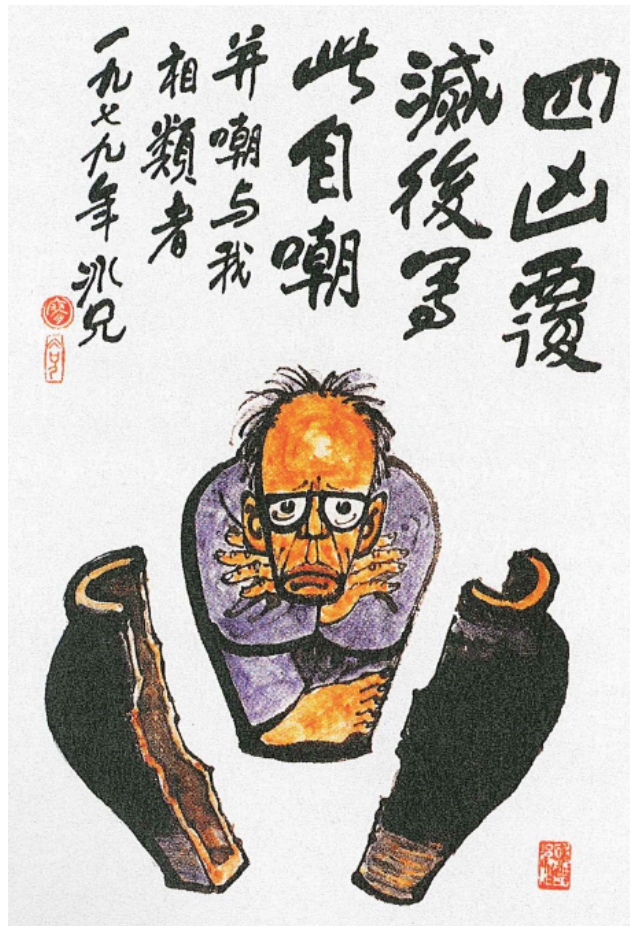 四凶覆
滅後写
此自嘲
并嘲与我
相類者
一九七九年冰兄
廖